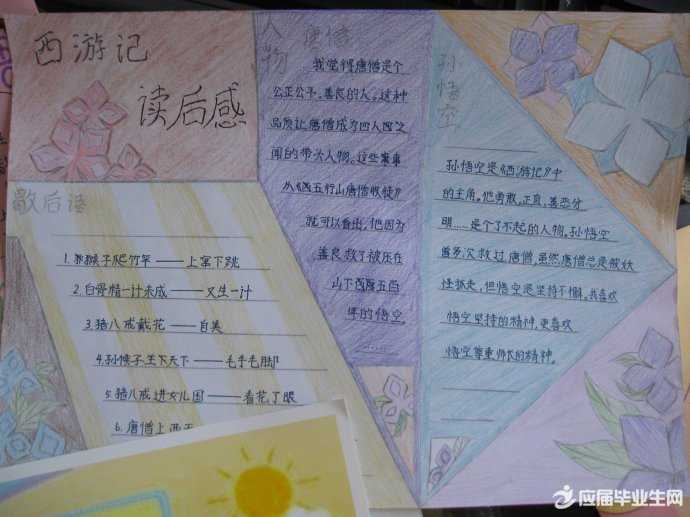 西游记
读后感
歇后语
1.猴子爬竹竿——上窜下跳
2.白骨精一计未成——又生一计
3.猪八戒戴花——自美
4.孙猴子王下天下——毛手毛脚
5.猪八戒进女儿国——看花了眼
6.唐僧上西天
人物
唐僧
我觉得唐僧是个
公正公平,善良的人。这种
品质让唐僧成为四人
的带头人物。这些
从《西五行山唐僧收徒》
就可以看出,他因为
善良救了被压在
山下
的悟空
……
孙悟空
孙悟空是《西游记》中
的主角。他勇敢,正直,善恶分
明……是个了不起的人物。孙悟空
曾多次救过唐僧,虽然唐僧总是被妖
怪抓走,但悟空是坚持不懈。我喜欢
悟空坚持的精神,更喜欢
悟空尊重师长的精神。
应届毕业生网